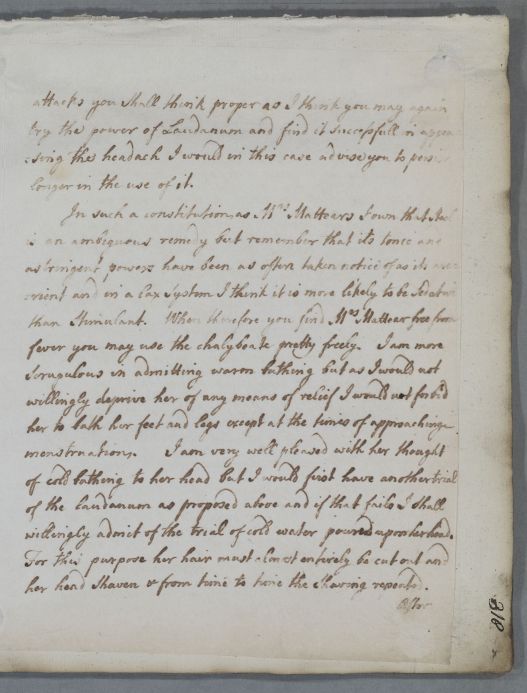 attacks you shall think proper as I think you may again
try the power of Laudanum and find it successfull in appea
:sing the headach I would in this case advise you to persis
longer in the use of it.
In such a constitution as Mrs Mattears I own that Steel
is an ambiguous remedy but remember that its tonic and
astringent powers have been as often taken notice of as its ape
:rient and in a lax system I think it is more likely to be Sedative
than Stimulant. When therefore you find Mrs Mattear free from
fever you may use the chalybeate pretty freely. I am more
Scrupulous in admitting warm bathing but as I would not
willingly deprive her of any means of relief I would not forbid
her to bath her feet and legs except at the times of approaching
menstruation. I am very well pleased with her thought
of cold bathing to her head but I would first have another trial
of the Laudanum as proposed above and if that fails I shall
willingly admit of the trial of cold water poured upon her head.
For this purpose her hair must almost entirely be cut out and
her head Shaven & from time to time the Shaving repeated.
After
218